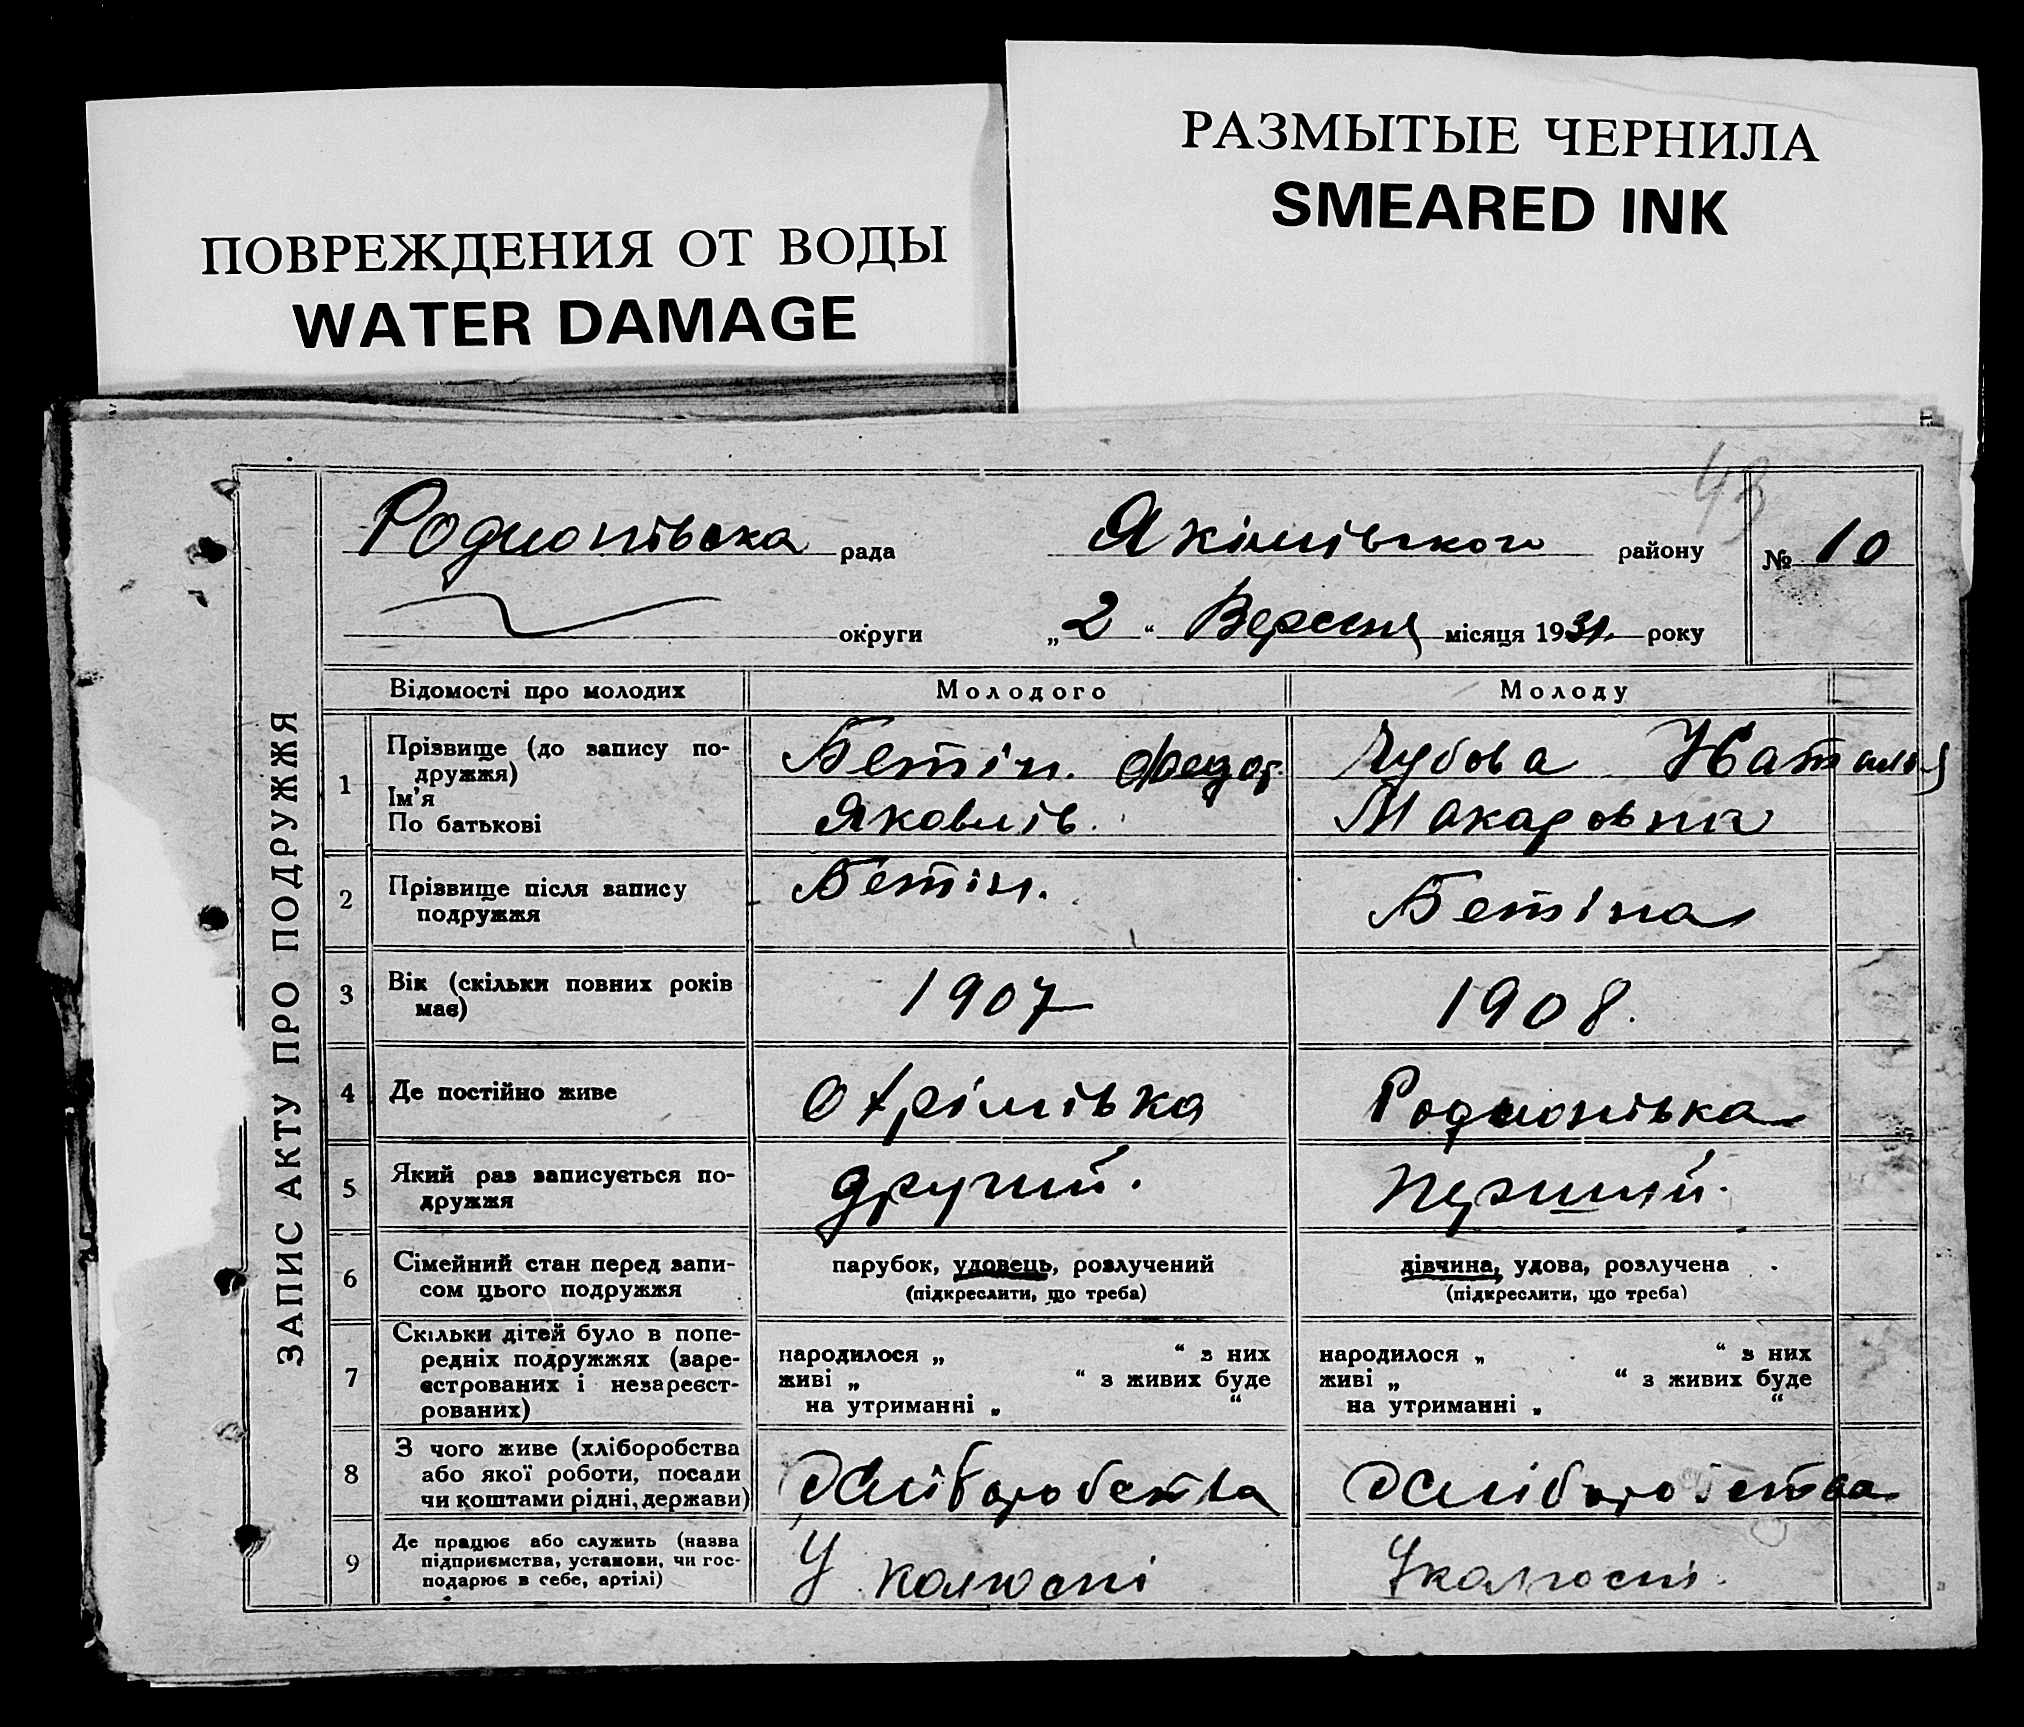 ПОВРЕЖДЕНИЯ ОТ ВОДЫ
WATER DAMAGE
РАЗМЫТЫЕ ЧЕРНИЛА
SMEARED INK
43
ЗАПИС АКТУ ПРО ПОДРУЖЖЯ
Родионівська рада Якімівського району № 10
округи „2“ Вересня місяця 1931. року
Відомості про молодих Молодого Молоду
1 Прізвище (до запису по-
дружжя)
Ім'я
По батькові
Бетін. Федор.
Яковлів.
Чубова Наталія
Макаровна
2 Прізвище після запису
подружжя
Бетін.
Бетіна
3 Вік (скільки повних років
має)
1907
1908.
4 Де постійно живе Охрімівка Родионівка
5 Який раз записується по-
дружжя
другий.
перший.
6 Сімейний стан перед запи-
сом цього подружжя
парубок, удовець, розлучений
(підкреслити, що треба)
дівчина, удова, розлучена
(підкреслити, що треба)
7 Скільки дітей було в попе-
редніх подружжях (заре-
єстрованих і незареєст-
рованих)
народилося „ “ з них
живі „ “ з живих буде
на утриманні „ “
народилося „ “ з них
живі „ “ з живих буде
на утриманні „ “
8 З чого живе (хліборобства
або якої роботи, посади
чи коштами рідні, держави)
Хліборобства
Хліборобства
9 Де працює або служить (назва
підприємства, установи, чи гос-
подарює в себе, артілі)
У колгоспі
У колгоспі.